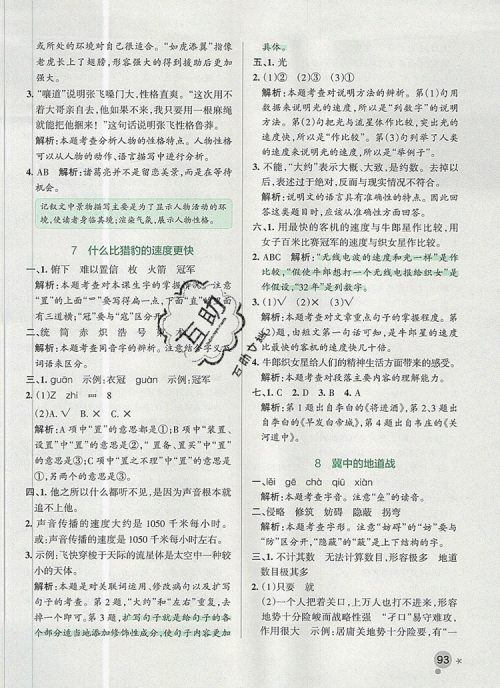 或所处的环境对自己很适合。“如虎添翼”指像
老虎长上了翅膀，形容强大的得到援助后更加
强大。
3. “嚷道”说明张飞嗓门大，性格直爽。“这次用不
着大哥亲自去，他如果不来，我只要用一根麻绳
就把他捆来！”这句话说明张飞性格鲁莽。
解析：本题考查分析人物的性格特点。人物的性格
可以从人物的动作、语言描写中进行分析。
4. AB 解析：诸葛亮并不是留恋美景，而是在等待
机会。
记叙文中景物描写主要是为了显示人物活动的环
境，使读者身临其境；渲染气氛，展示人物性格。
7 什么比猎豹的速度更快
一、1. 俯下 难以置信 枚 火箭 冠军
解析：本题考查对本课生字的掌握程度。“俯”
的右下边是“付”；“置”要写得扁一点，下面里面
是三横；“冠”要与“寇”区分开。
二、统 筒 赤 炽 浩 号
解析：本题考查同音字的辨析。
词语表区分。
三、1. guān 示例：衣冠 guàn 示例：冠军
2. (1)Z zhì 罒 8
(2)A. √ B. × C. ×
解析：A项中“置”的意思都是①；B项中“装置”
的“置”的意思是②，其他两个词语中“置”的意
思是③；C项中“置之不理”中“置”的意思是
①，另两个的意思是③。
四、1. 他之所以什么都听不见，是因为声音根本就
追不上他。
2. 声音传播的速度大约是 1050 千米每小时。
或：声音传播的速度是 1050 千米每小时左右。
3. 示例：飞快穿梭于天际的流星体是太空中一种较
小的天体。
解析：本题考查对关联词运用、修改病句以及扩写
句子的考查。第 2 题，“大约”和“左右”重复，去
掉一个即可。第 3 题，扩写句子就是给句子的各
个部分适当地添加修饰性成分，使句子内容更加
具体。
五、1. 光
2. (1)② (2)③ (3)①
解析：本题考查对说明方法的辨析。第(1)句用
数据来说明光的速度，所以是“列数字”的说明
方法。第(2)句把光与流星体作比较，突出光的
速度快，所以是“作比较”。第(3)句列举了人类
的速度来说明光的速度，所以是“举例子”。
3. 不能，“大约”表示大概、大致，或者接近。去掉以
后，表达过于绝对，反而与现实情况不符。
解析：说明文的语言具有准确性的特点。本题考
查对说明文语言准确性的理解。
六、1. 用最快的客机的速度与牛郎星作比较，用
女子百米比赛冠军的速度与织女星作比较。
2. ABC 解析：“无线电波的速度和光一样”是“作比
较”，“假使牛郎想打一个无线电报给织女”是“作
假设”，“32 年”是列数字。
3. (1)√ (2)× (3)√
解析：本题考查对文章重点句子的掌握程度。第
(2)题，由短文第一句话可知，是牛郎星的速度比
最快的客机的速度快几十倍。
4. 牛郎织女星给人们的精神生活方面带来的感受。
解析：本题考查对段落主要内容的理解能力。
七、1. C 2. D 3. B 4. A
解析：第 1 题出自李白的《将进酒》，第 2、3 题出
自李白的《早发白帝城》，第 4 题出自韦庄的《关
河道中》。
8 冀中的地道战
一、lěi gē chà qiū xiàn
解析：本题考查字音。注意“疙”的读音。
二、侵略 修筑 妨碍 隐蔽 拐弯
解析：本题考查字形。注意“妨碍”的“妨”要与
“防”区分开，“隐蔽”的“蔽”要与“弊”区分开。
三、1. 不计其数 无法计算数目，形容极多 地道
数目极其多
2. (1)只要 就
(2)一个人把着关口，上万人也打不进来，形容
地势十分险要，易守难攻 “孑口”易守难攻，
作用十分强大 示例：居庸关地势十分险要，有“一
互助
互助文档
93